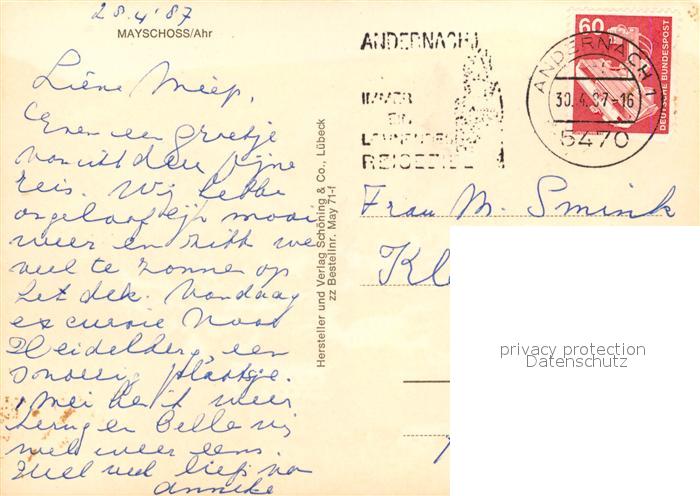 28.4.'87
MAYSCHOSS/Ahr
Lieve Miep,
Even een groetje
vanuit deze fijne
reis. Wij hebben
ongelooflijk mooi
weer en zitten we
veel te zonnen op
het dek. Vandaag
excursie naar
Heidelberg, een
snoezig plaatsje.
1 mei ben ik weer
terug en bellen wij
wel weer eens.
Veel liefs van
Anneke
Hersteller und Verlag Schöning & Co., Lübeck
zz Bestellnr. May 71-f
ANDERNACH
IMMER
EIN
LOHNENDES
REISEZIEL
ANDERNACH 1
30.4.87-16
5470
60
DEUTSCHE BUNDESPOST
Frau M. Smink
Kl
privacy protection
Datenschutz